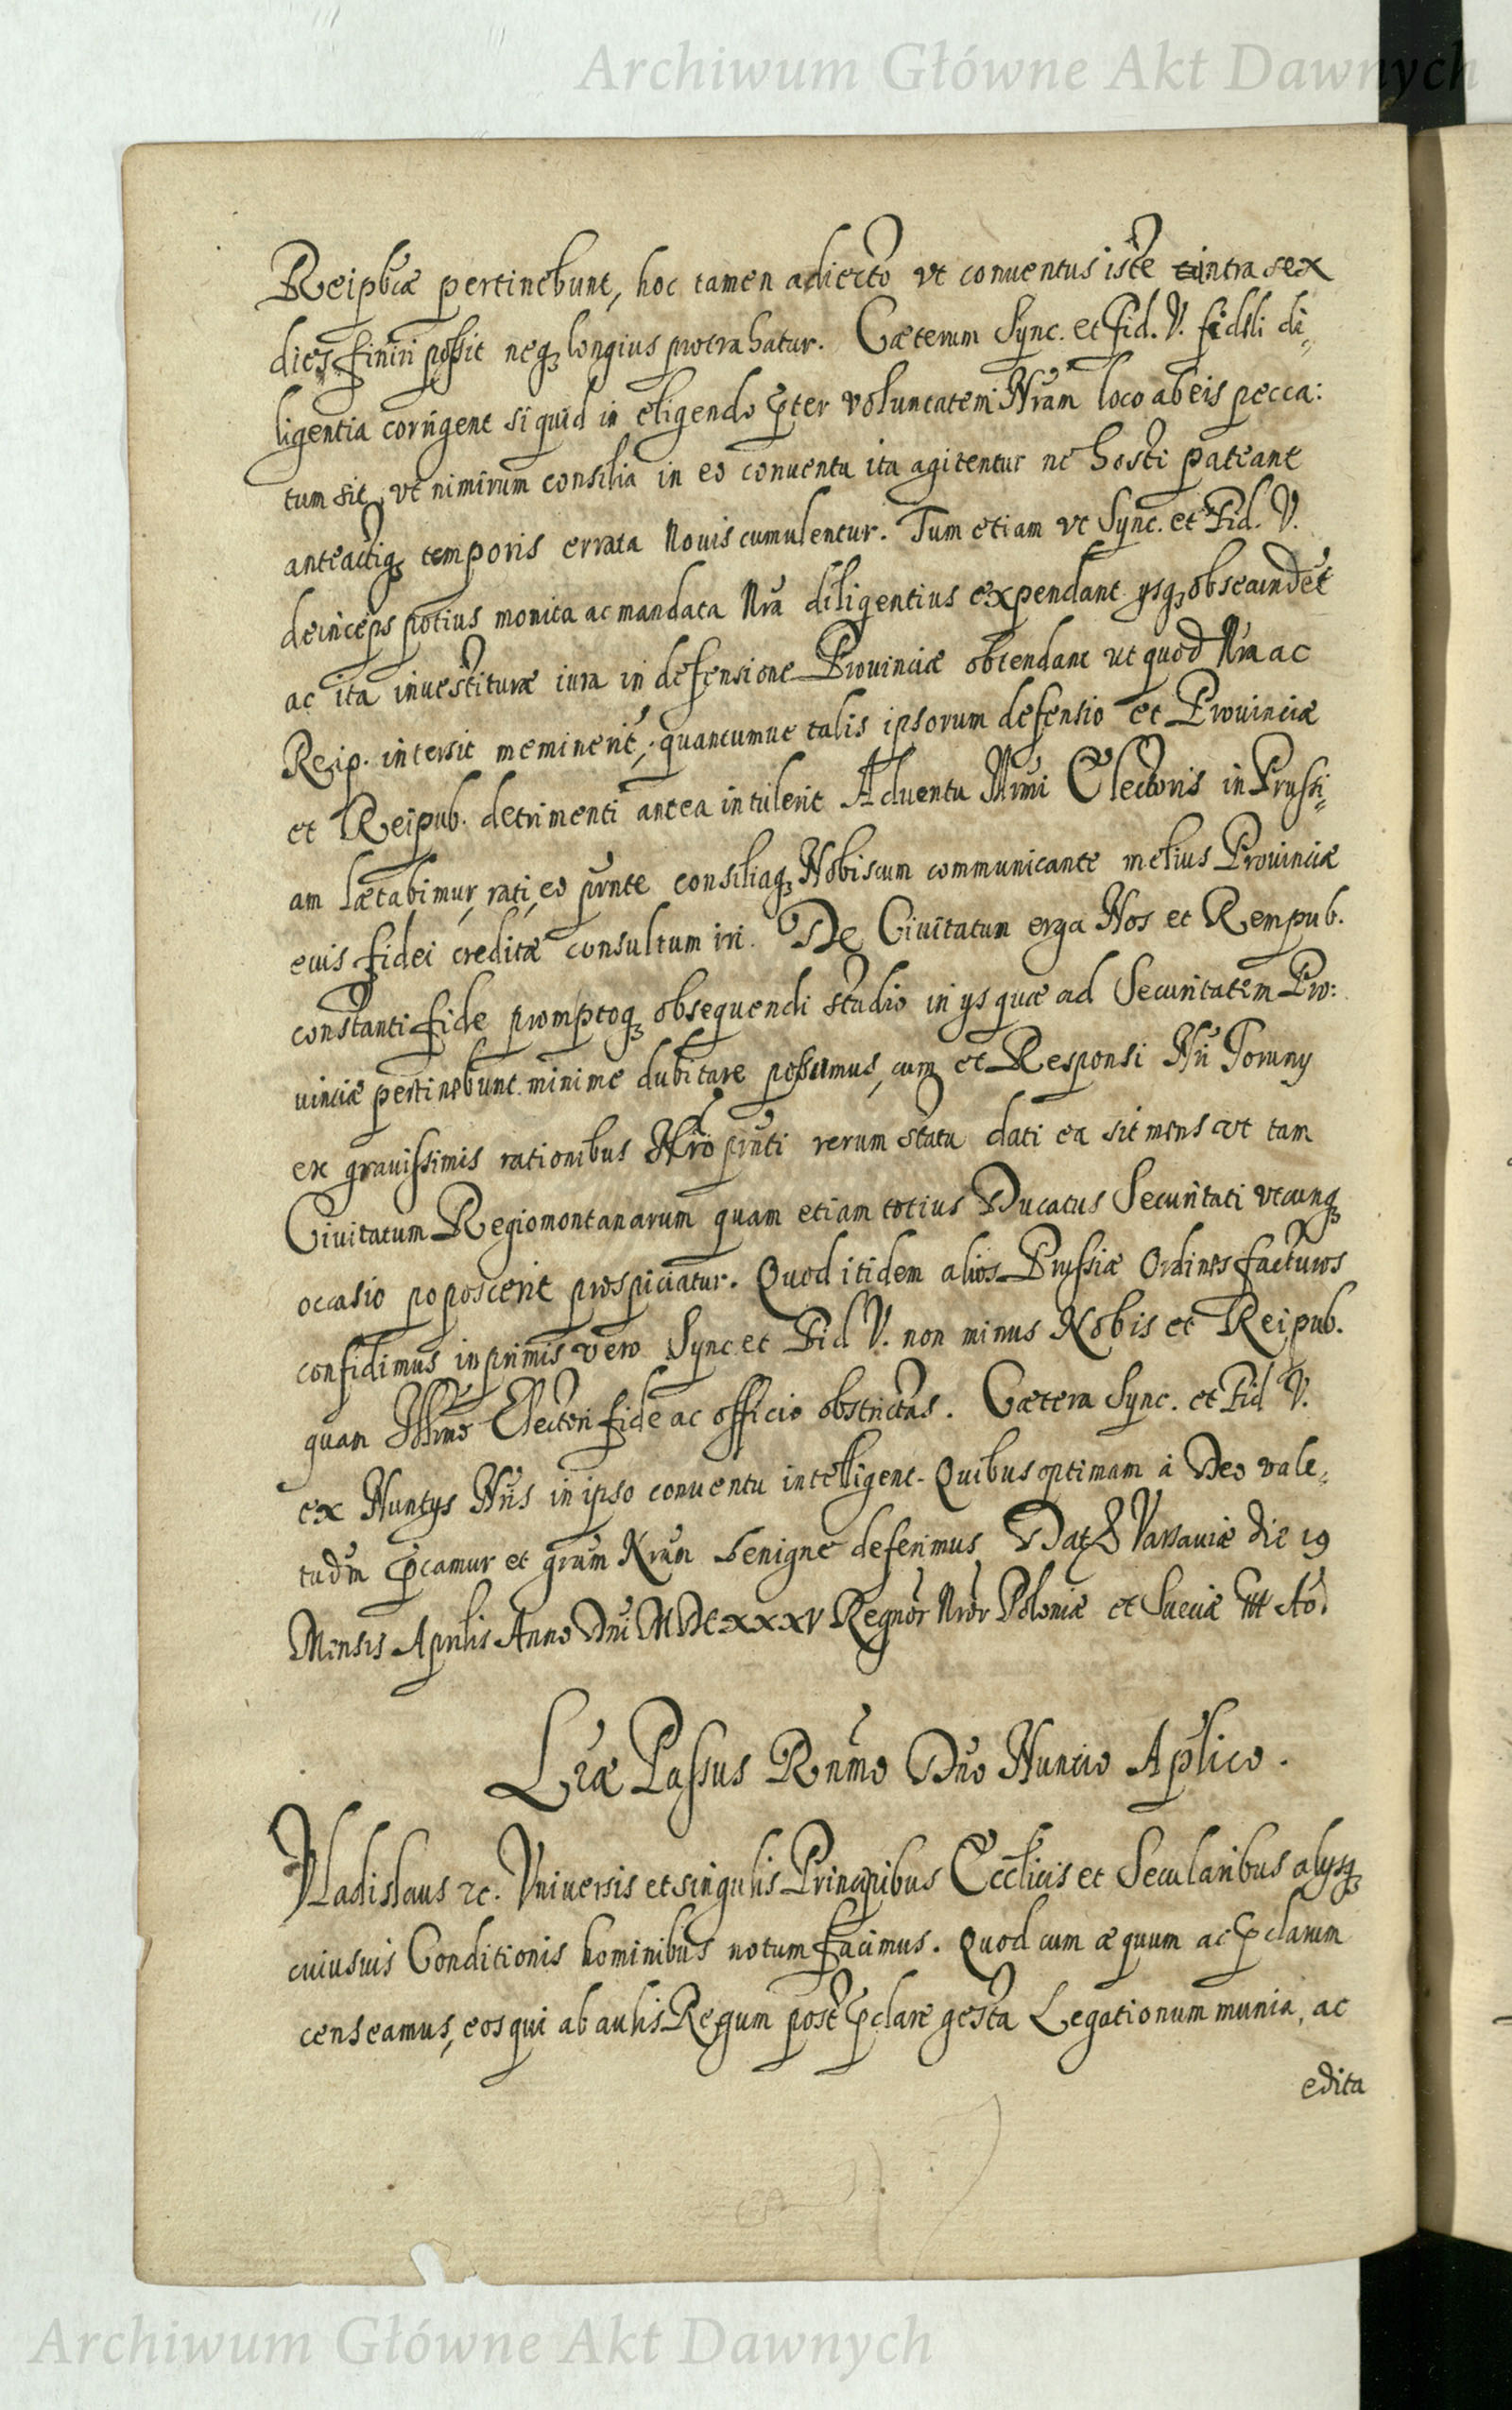 Archiwum Główne Akt Dawnych
Reipblcæ pertinebunt, hoc tamen adiecto vt conuentus iste intra sex
dies finiri possit neq₃ longius protrahatur. Cæterum Sync. et Fid. V. fideli di„
ligentia corrigent si quid in eligendo p̃ter voluntatem Nr̃am loco ab eis pecca:
tum sit, vt nimirum consilia in eo conuentu ita agitentur ne hosti pateant
anteactiq₃ temporis errata nouis cumulentur. Tum etiam vt Sync. et Fid. V.
deinceps potius monita ac mandata Nr̃a diligentius expendant ysq₃ obsecundẽt
ac ita inuestituræ iura in defensione Prouinciæ obtendant ut quod Nr̃a ac
Reip. intersit meminerĩt, quantumue talis ipsorum defensio et Prouinciæ
et Reipub. detrimenti antea intulerit Aduentu Illr̃mi Electoris in Prussi„
am lætabimur, rati, eo pr̃nte consiliaq₃ Nobiscum communicante melius Prouinciæ
euis fidei creditæ consultum iri. De Ciuitatum erga Nos et Rempub.
constanti fide promptoq₃ obsequendi studio in ys quæ ad Securitatem Pro:
uinciæ pertinebunt minime dubitare possumus, cum et Responsi Nr̃i Toruny
ex grauissimis rationibus Nr̃o pr̃nti rerum statu dati ea sit mens vt tam
Ciuitatum Regiomontanarum quam etiam totius Ducatus Securitati vtcunq₃
occasio poposcerit prospiciatur. Quod itidem alios Prussiæ Ordines facturos
confidimus inprimis vero Sync et Fid V. non minus Nobis et Reipub.
quam Illr̃mo Electori fide ac officio obstrictas. Cætera Sync. et Fid V.
ex Nuntys Nr̃is in ipso conuentu intelligent. Quibus optimam à Deo vale„
tudm̃ p̃camur et gr̃am Nr̃am benigne deferimus Dat Varsauiæ die 19
Mensis Aprilis Anno Dnĩ MDCXXXV Regnor̃ Nr̃or̃ Poloniæ et Sueciæ III Aõ.
Lr̃æ Passus Rñmo Dño Nuncio Aplĩco.
Vladislaus ꝛc. Vniuersis et singulis Principibus Ecclĩcis et Secularibus alysq₃
cuiusuis Conditionis hominibus notum facimus. Quod cum æquum ac p̃clarum
censeamus, eos qui ab aulis Regum post p̃clare gesta Legationum munia, ac
edita
Archiwum Główne Akt Dawnych